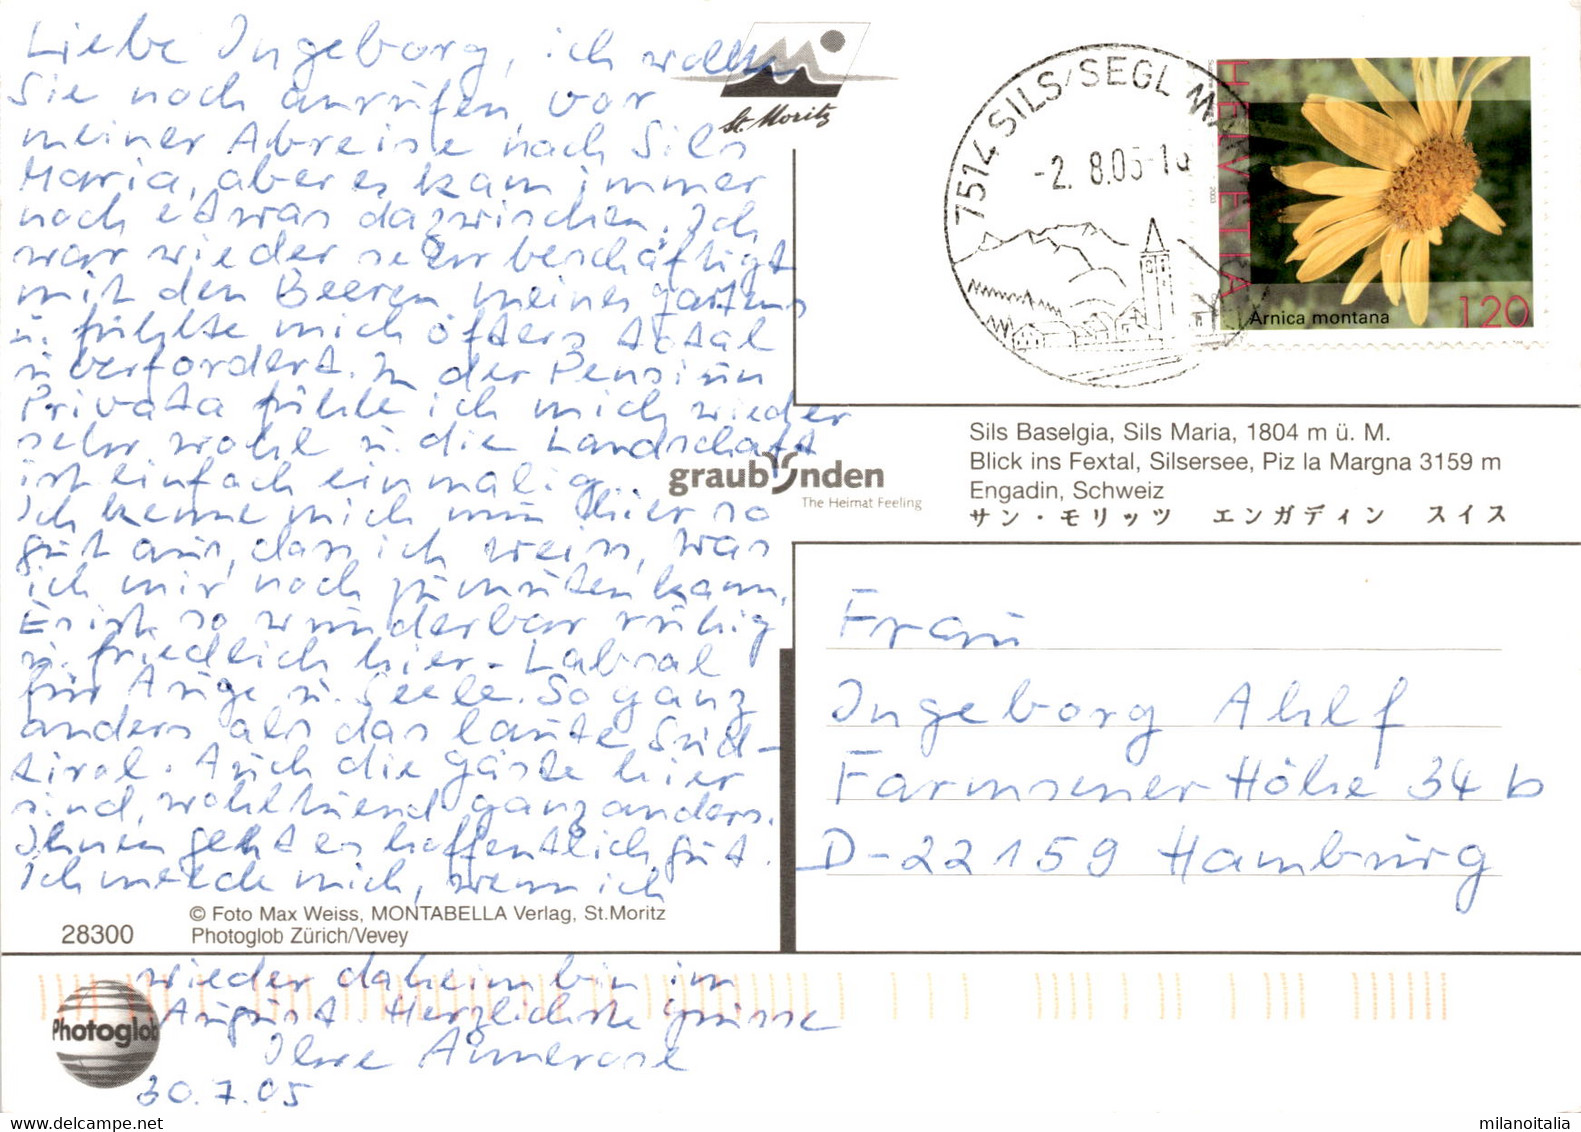 Liebe Ingeborg, ich wollte
Sie noch anrufen vor
meiner Abreise nach Sils
Maria, aber es kam immer
noch etwas dazwischen. Ich
war wieder sehr beschäftigt
mit den Beeren meines Gartens
u. fühlte mich öfters total
überfordert. In der Pension
Privata fühle ich mich wieder
sehr wohl u. die Landschaft
ist einfach einmalig.
Ich kenne mich nun hier so
gut aus, dass ich weiss, was
ich mir noch zumuten kann.
Es ist so wunderbar ruhig
u. friedlich hier - Labsal
für Auge u. Seele. So ganz
anders als das laute Süd-
tirol. Auch die Gäste hier
sind, wohltuend ganz anders.
Ihnen geht es hoffentlich gut.
Ich melde mich, wenn ich
wieder daheim bin im
August. Herzlichste Grüsse
Ihre Annerose
30.7.05
St. Moritz
graubünden
The Heimat Feeling
© Foto Max Weiss, MONTABELLA Verlag, St.Moritz
28300 Photoglob Zürich/Vevey
Photoglob
7514 SILS/SEGL
-2. 8.05-
HELVETIA
2003
Arnica montana
120
Sils Baselgia, Sils Maria, 1804 m ü. M.
Blick ins Fextal, Silsersee, Piz la Margna 3159 m
Engadin, Schweiz
サン・モリッツ エンガディン スイス
Frau
Ingeborg Ahlf
Farmsener Höhe 34 b
D-22159 Hamburg
delcampe.net
milanoitalia